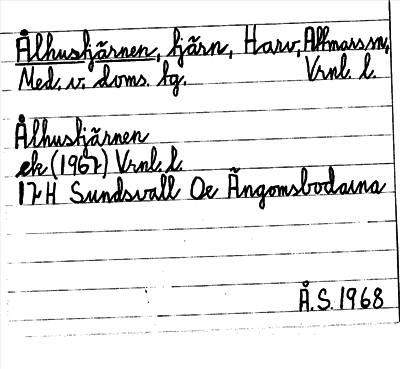 Ålhustjärnen, tjärn, Harv, Attmars sn,
Med. v. doms. tg. Vrnl. l.
Ålhustjärnen
ek (1967) Vrnl. l.
17H Sundsvall Oc Ängomsbodarna
Å.S. 1968